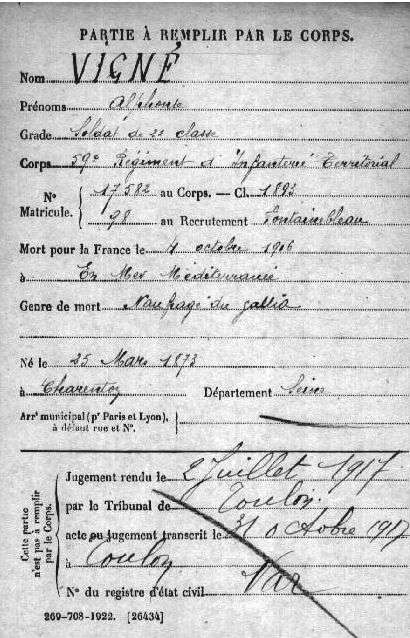 PARTIE À REMPLIR PAR LE CORPS.
Nom VIGNÉ
Prénoms Alphonse
Grade Soldat de 2e classe
Corps 59e Régiment d'Infanterie Territorial
N° Matricule. 17582 au Corps. — Cl. 1893
98 au Recrutement Fontainebleau
Mort pour la France le 4 octobre 1916
à En Mer Méditerranée
Genre de mort Naufrage du Gallia
Né le 25 Mars 1873
à Charenton Département Seine
Arrt municipal (pr Paris et Lyon),
à défaut rue et N°.
Cette partie
n'est pas à remplir
par le Corps.
Jugement rendu le 2 Juillet 1917
par le Tribunal de Toulon.
acte ou jugement transcrit le 31 Octobre 1917
à Toulon
Var
N° du registre d'état civil
269-708-1922. [26434]